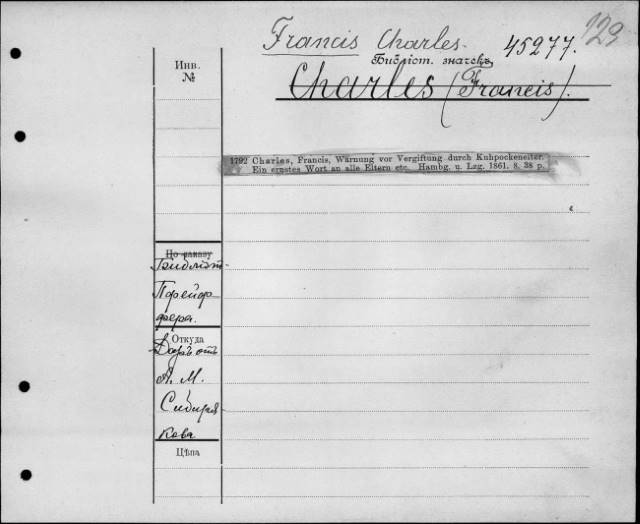 129
Francis Charles.
45277.
Библіот. значекъ
Charles (Francis).
Инв.
№
1792 Charles, Francis, Warnung vor Vergiftung durch Kuhpockeneiter.
Ein ernstes Wort an alle Eltern etc. Hambg. u. Lzg. 1861. 8. 38 p.
По заказу
Библіот.
Пфейф-
фера.
Откуда
Даръ отъ
А. М.
Сибиря-
кова
Цѣна